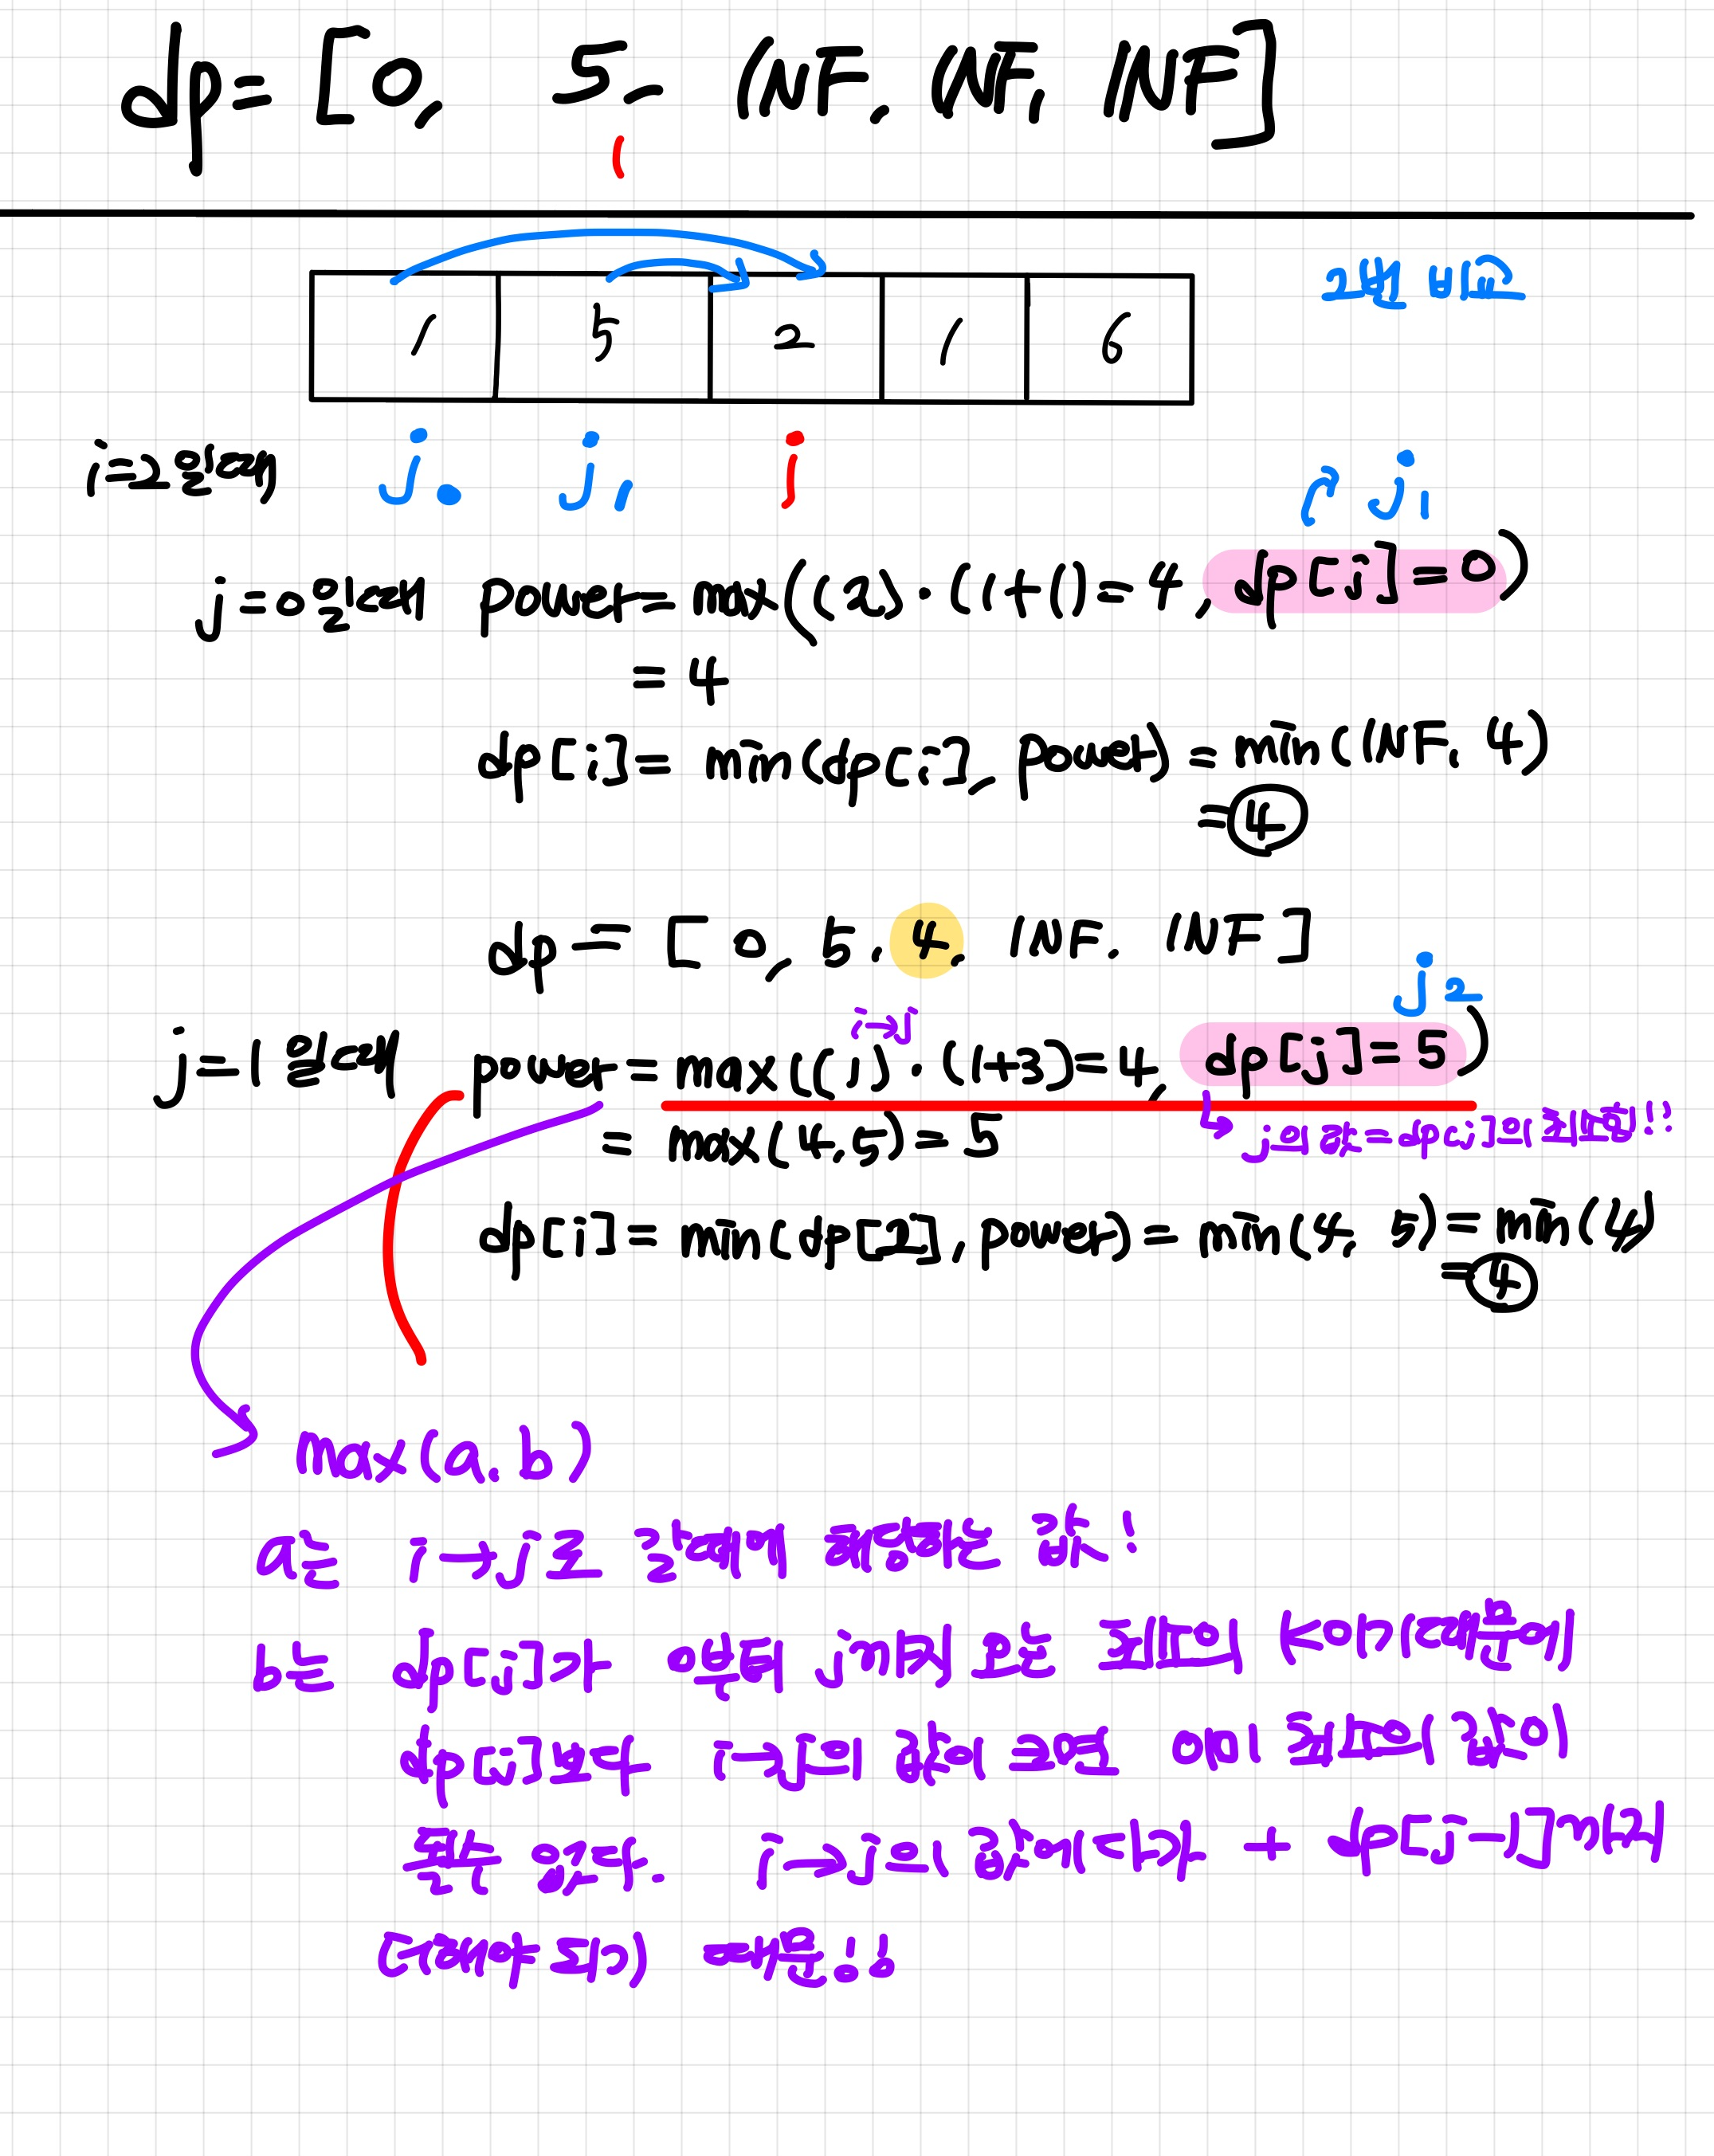 dp = [0, 5, INF, INF, INF]
1
2번 비교
1 5 2 1 6
i=2일때 j0 j1 i
j1
j=0일때 power = max((2)·(1+1)=4, dp[j]=0)
= 4
dp[i] = min(dp[i], power) = min(INF, 4)
= 4
dp = [0, 5, 4, INF, INF]
j2
i→j
j=1일때 power = max((1)·(1+3)=4, dp[j]=5)
= max(4, 5) = 5
j의 값 = dp[j]의 최소힘!!
dp[i] = min(dp[2], power) = min(4, 5) = min(4)
= 4
max(a, b)
a는 i→j로 갈때에 해당하는 값!
b는 dp[j]가 0부터 j까지 오는 최소의 k이기때문에
dp[j]보다 i→j의 값이 크면 이미 최소의 값이
될수 없다. i→j의 값에다가 + dp[j-1]까지
더해야 되기 때문!!